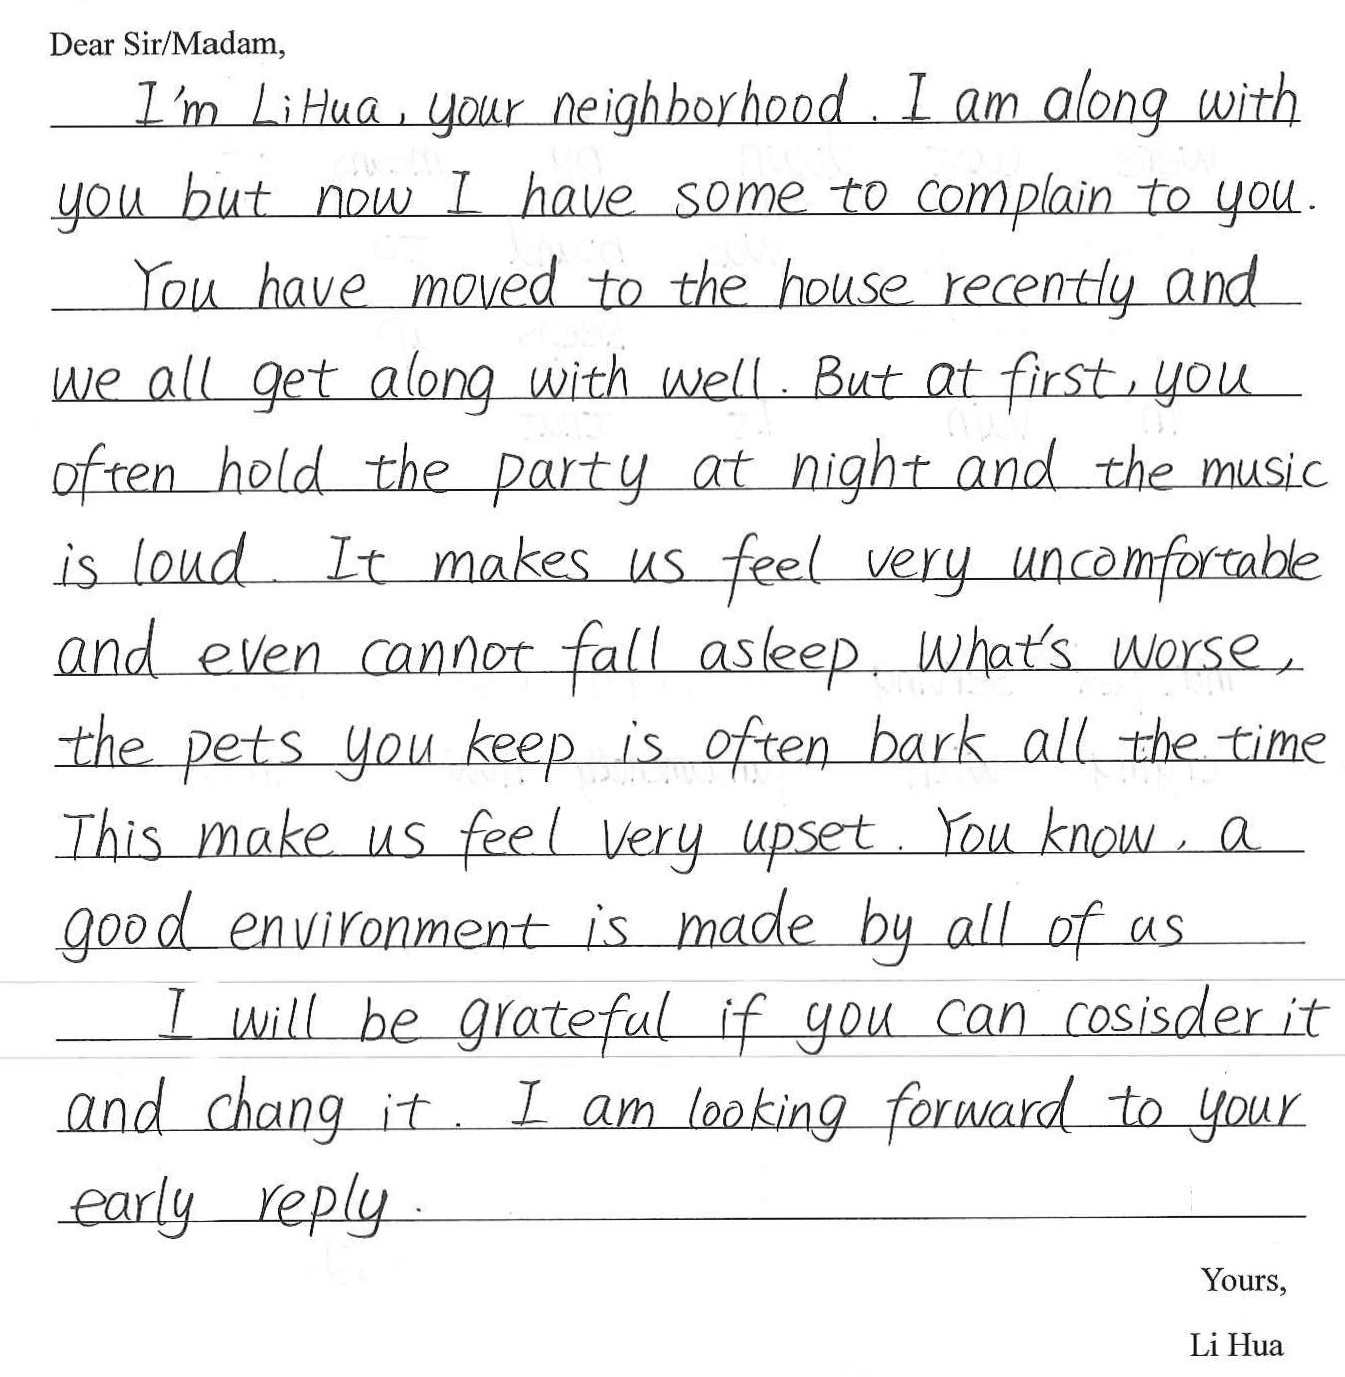 Dear Sir/Madam,
I'm LiHua, your neighborhood. I am along with
you but now I have some to complain to you.
You have moved to the house recently and
we all get along with well. But at first, you
often hold the party at night and the music
is loud. It makes us feel very uncomfortable
and even cannot fall asleep. What's worse,
the pets you keep is often bark all the time
This make us feel very upset. You know, a
good environment is made by all of us
I will be grateful if you can cosisder it
and chang it. I am looking forward to your
early reply.
Yours,
Li Hua